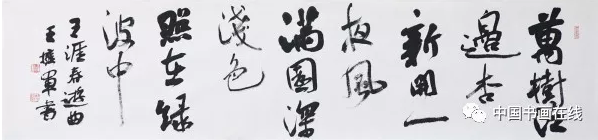 萬樹江
邊杏
新開一
夜風
滿園深
淺色
照在綠
波中
王涯春遊曲
王軍書
中国书画在线